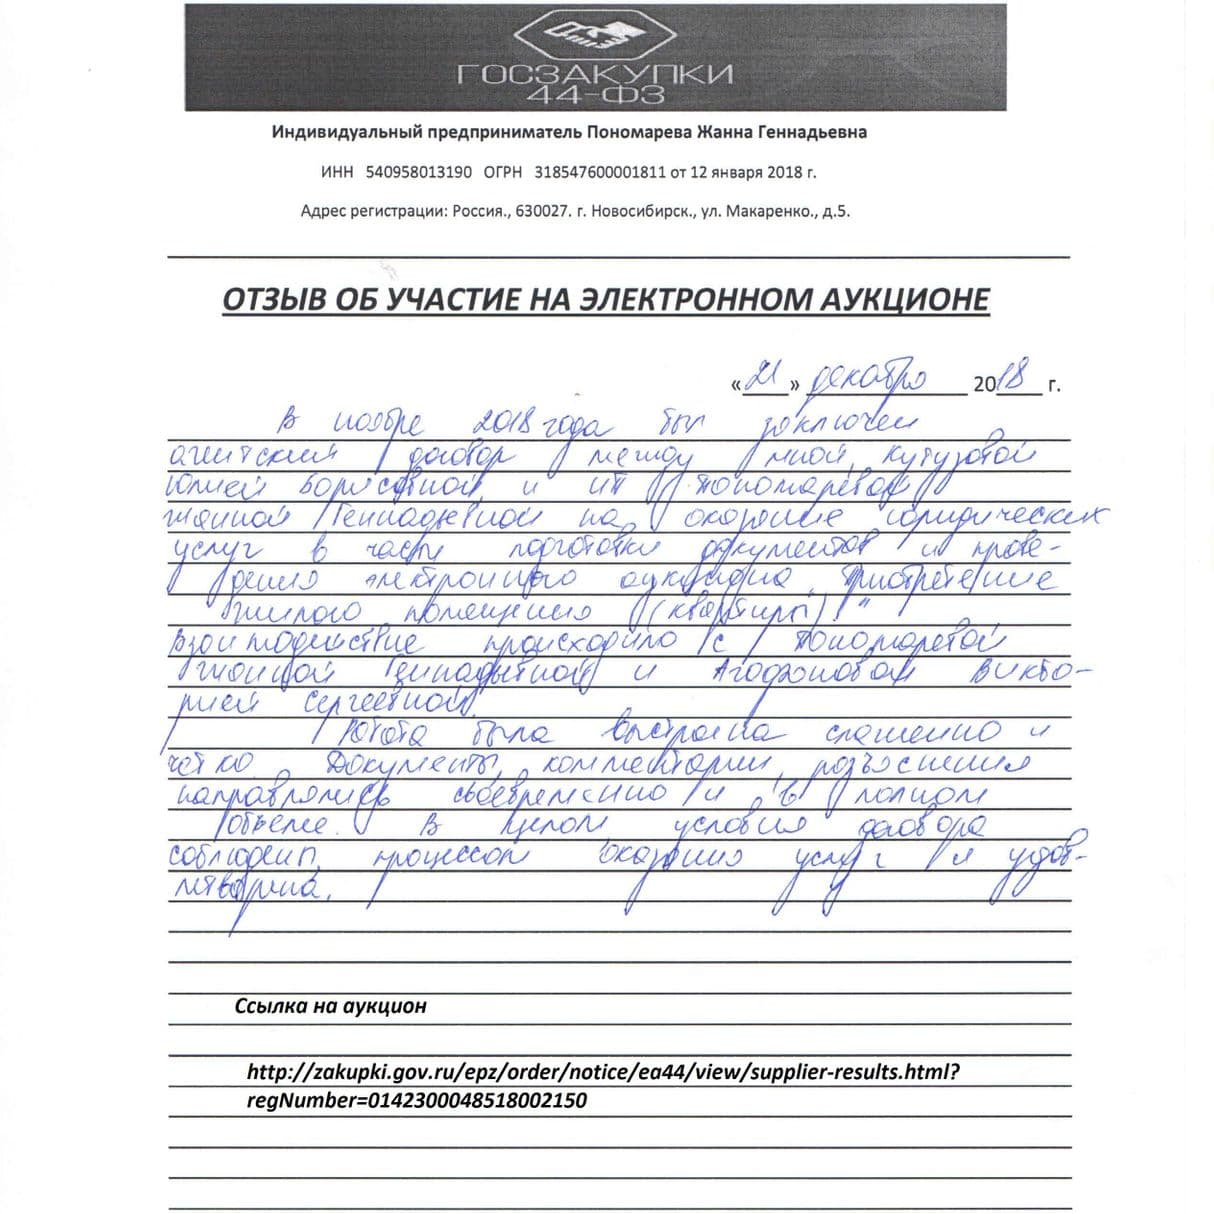 ГОСЗАКУПКИ
44-ФЗ
Индивидуальный предприниматель Пономарева Жанна Геннадьевна
ИНН 540958013190 ОГРН 318547600001811 от 12 января 2018 г.
Адрес регистрации: Россия., 630027. г. Новосибирск., ул. Макаренко., д.5.
ОТЗЫВ ОБ УЧАСТИЕ НА ЭЛЕКТРОННОМ АУКЦИОНЕ
«21» декабря 2018 г.
В ноябре 2018 года был заключен
агентский договор между мной, Кутузовой
Юлией Борисовной, и ИП Пономаревой
Жанной Геннадьевной на оказание юридических
услуг в части подготовки документов и прове-
дения электронного аукциона "Приобретение
жилого помещения (квартиры)".
Взаимодействие происходило с Пономаревой
Жанной Геннадьевной и Агафоновой Викто-
рией Сергеевной.
Работа была выстроена слаженно и
четко. Документы, комментарии, разъяснения
направлялись своевременно и в полном
объеме. В целом условия договора
соблюдены, процессом оказания услуг я удов-
летворена.
Ссылка на аукцион
http://zakupki.gov.ru/epz/order/notice/ea44/view/supplier-results.html?
regNumber=0142300048518002150